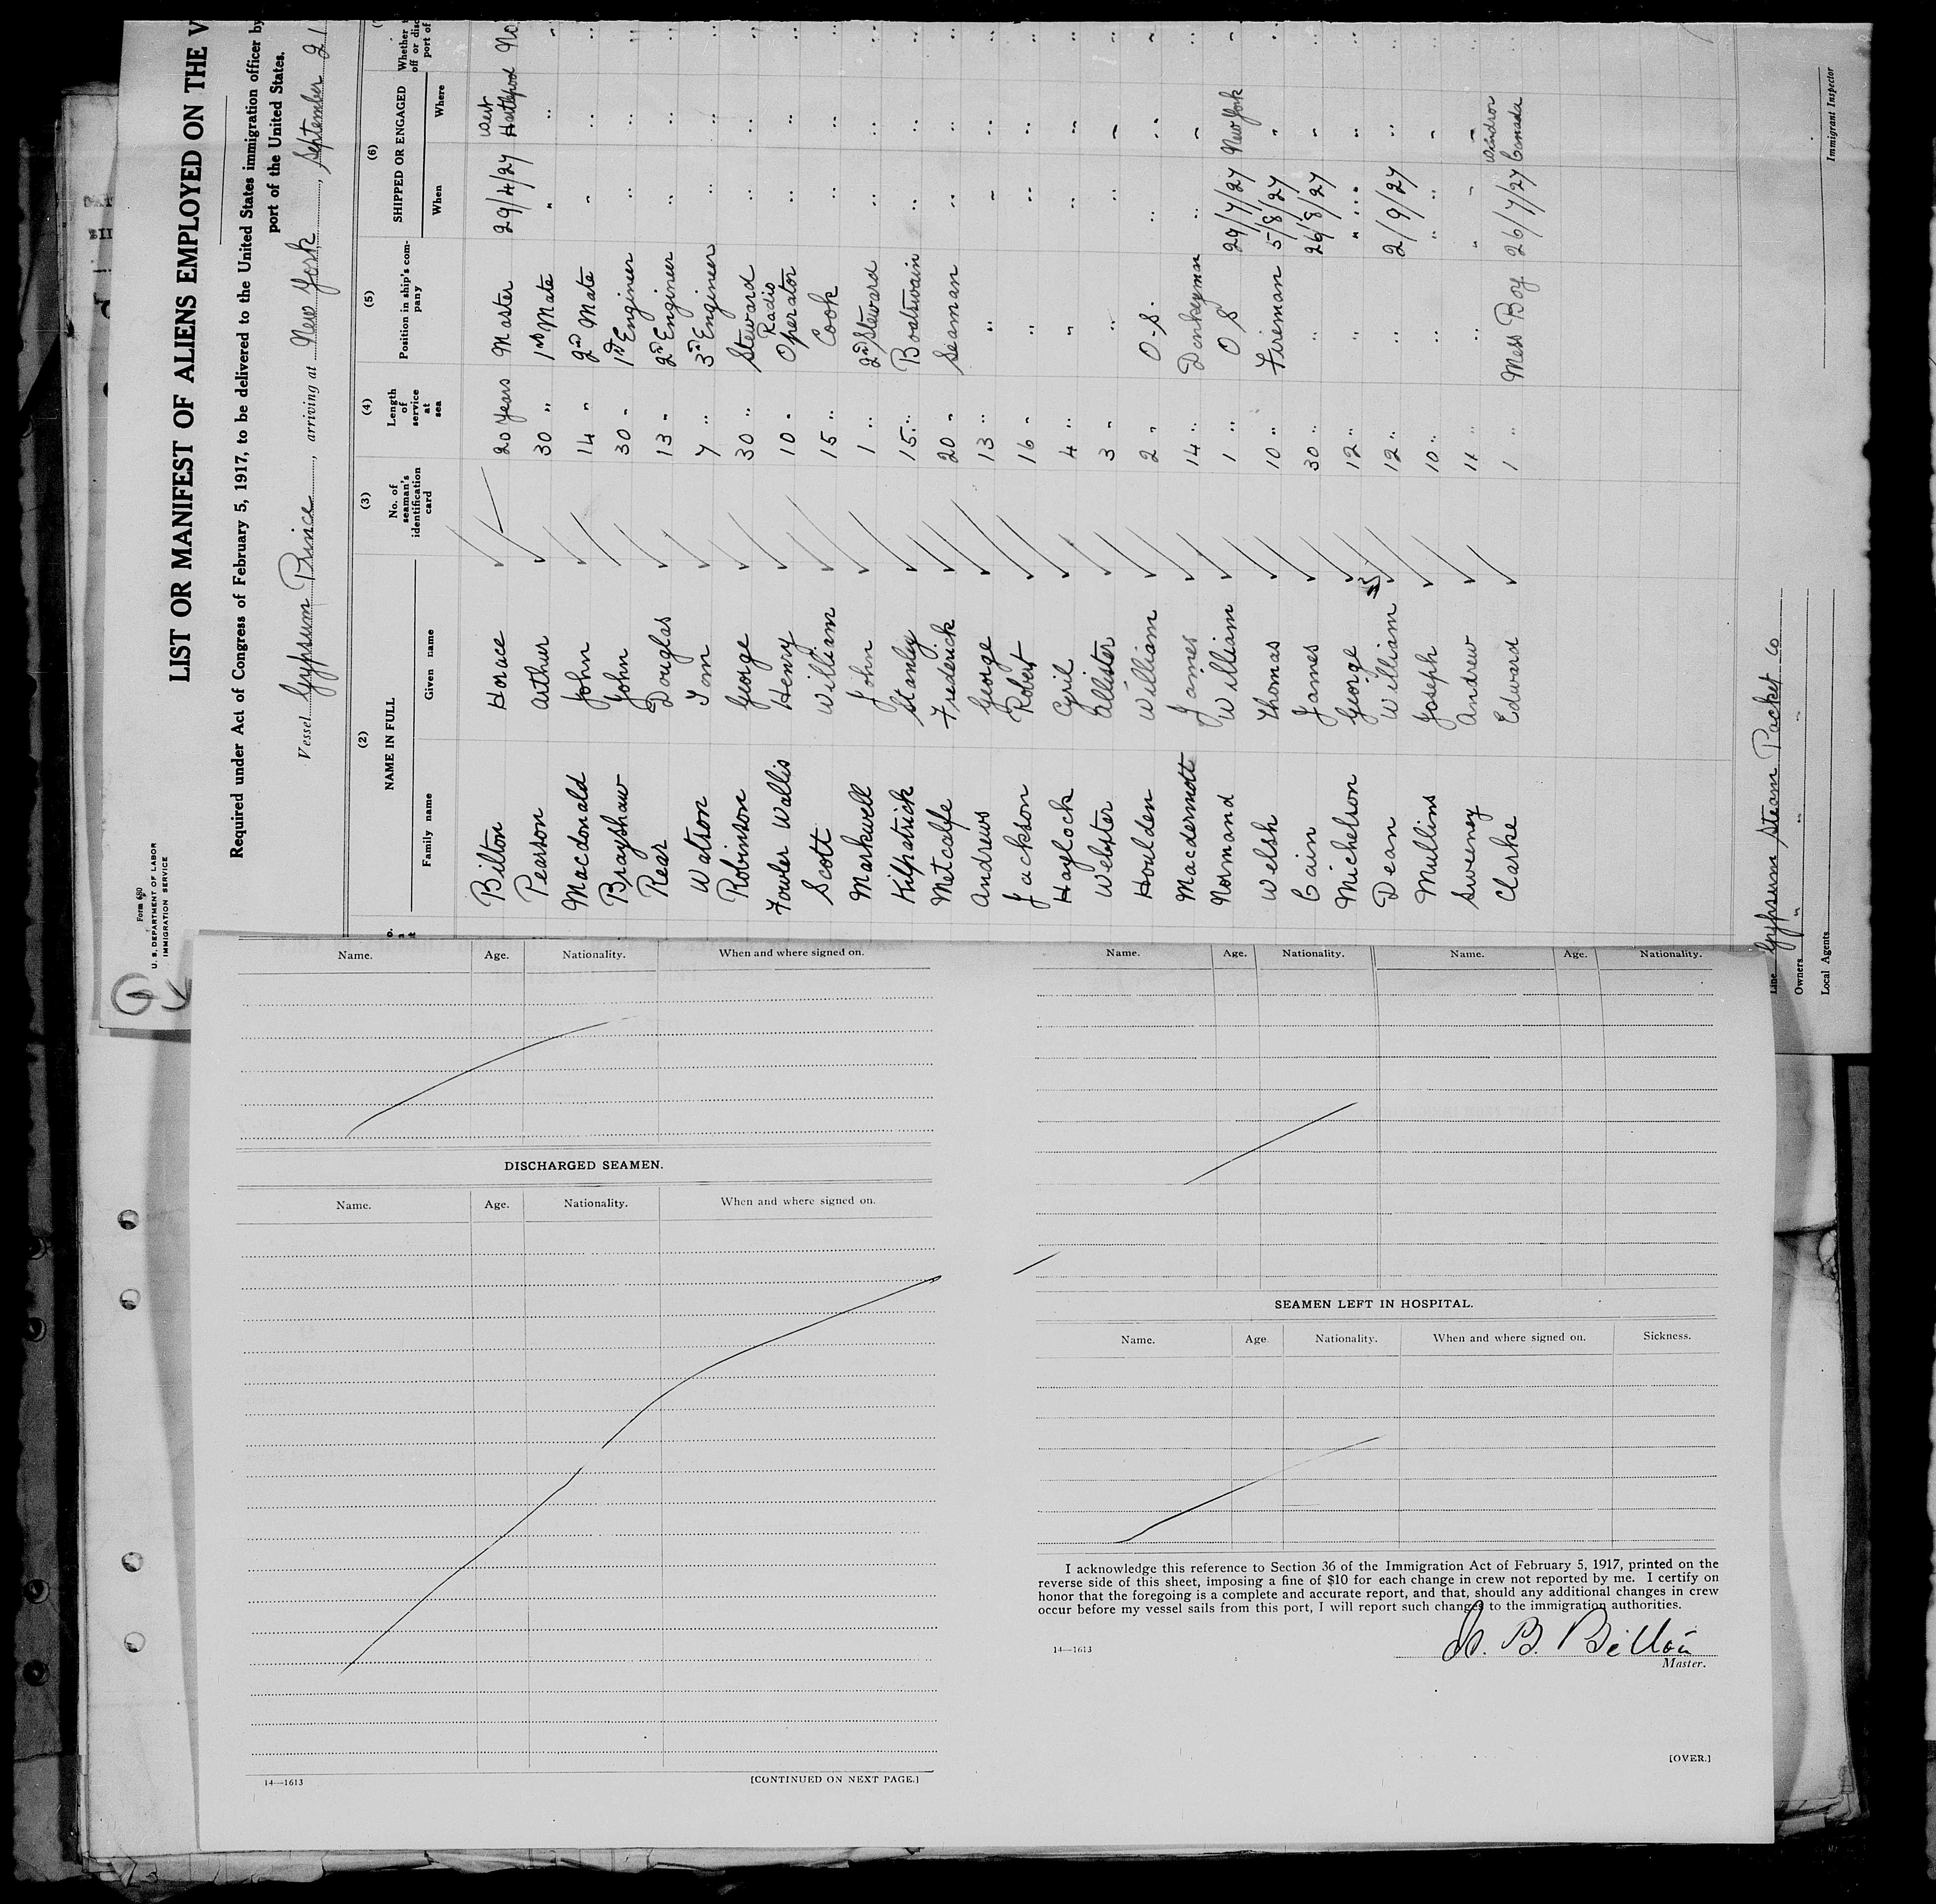 Form 680
U. S. DEPARTMENT OF LABOR
IMMIGRATION SERVICE
LIST OR MANIFEST OF ALIENS EMPLOYED ON THE V
Required under Act of Congress of February 5, 1917, to be delivered to the United States immigration officer by
port of the United States.
Vessel Gypsum Prince, arriving at New York, September 21
(2) (3) (4) (5) (6)
NAME IN FULL No. of seaman's identification card Length of service at sea Position in ship's company SHIPPED OR ENGAGED Whether
Family name Given name When Where
Bilton Horace 20 Years Master 29/4/27 West Hartlepool No
Pearson Arthur 30 " 1st Mate " "
Macdonald John 14 " 2nd Mate " "
Brayshaw John 30 " 1st Engineer " "
Rear Douglas 13 " 2nd Engineer " "
Watson Tom 7 " 3rd Engineer " "
Robinson George 30 " Steward " "
Fowler Wallis Henry 10 " Radio Operator " "
Scott William 15 " Cook " "
Markwell John 1 " 2nd Steward " "
Kilpatrick Stanley 15 " Boatswain " "
Metcalfe Frederick 20 " Seaman " "
Andrews George 13 " " " "
Jackson Robert 16 " " " "
Haylock Cyril 4 " " " "
Webster Allister 3 " " " "
Houlden William 2 " O.S. " "
Macdermott James 14 " Donkeyman " "
Normand William 1 " O S 29/7/27 New York
Welsh Thomas 10 " Fireman 5/8/27 "
Cain James 30 " " 26/8/27 "
Michelson George 12 " " " "
Dean William 12 " " 2/9/27 "
Mullins Joseph 10 " " " "
Sweeney Andrew 11 " " " "
Clarke Edward 1 " Mess Boy 26/7/27 Windsor Canada
Line Gypsum Steam Packet Co
Owners " "
Local Agents
Immigrant Inspector
Name. Age. Nationality. When and where signed on.
DISCHARGED SEAMEN.
Name. Age. Nationality. When and where signed on.
14—1613 [CONTINUED ON NEXT PAGE.]
Name. Age. Nationality. Name. Age. Nationality.
SEAMEN LEFT IN HOSPITAL.
Name. Age Nationality. When and where signed on. Sickness.
I acknowledge this reference to Section 36 of the Immigration Act of February 5, 1917, printed on the
reverse side of this sheet, imposing a fine of $10 for each change in crew not reported by me. I certify on
honor that the foregoing is a complete and accurate report, and that, should any additional changes in crew
occur before my vessel sails from this port, I will report such changes to the immigration authorities.
H. B. Bilton
14—1613 Master.
[OVER.]